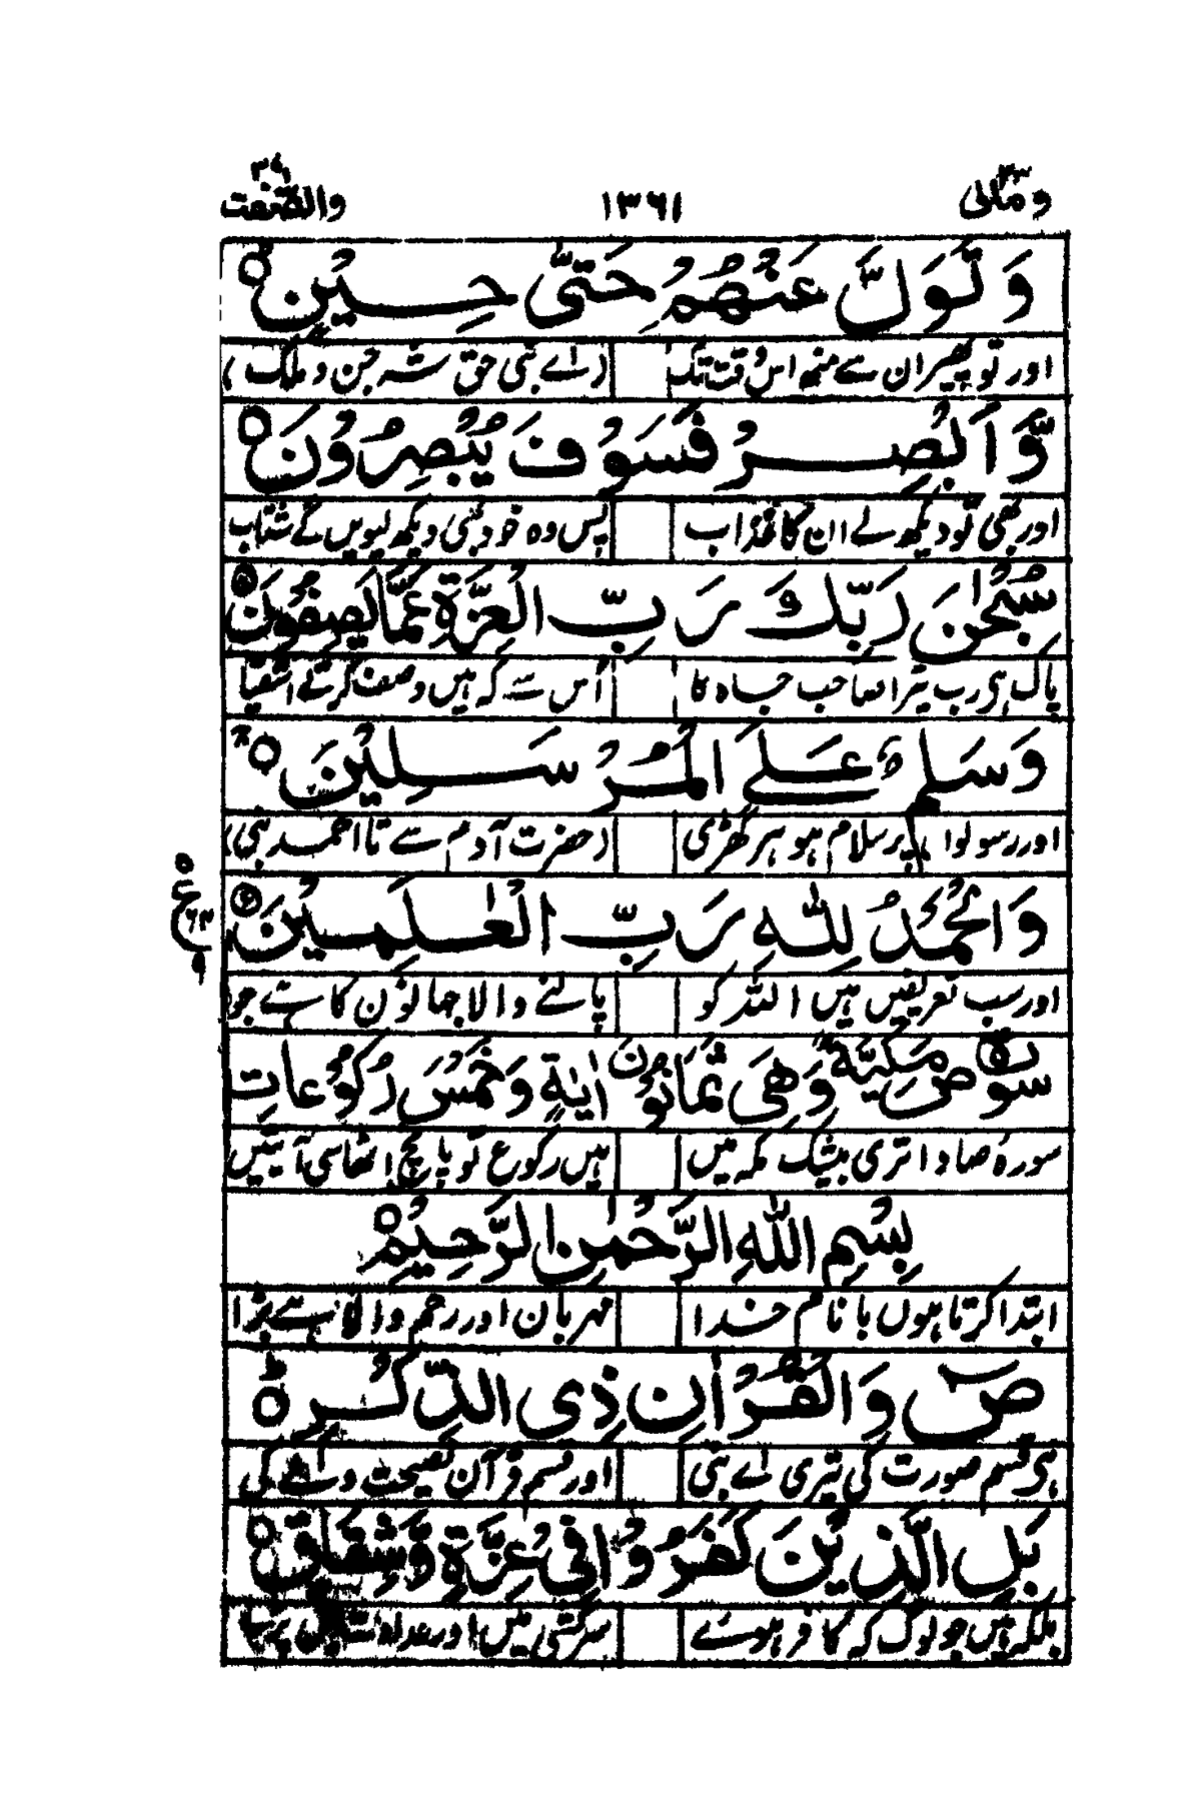 ومالی ۲۳ ۱۳۶۱ والصّٰفّٰت ۳۷
وَتَوَلَّ عَنْهُمْ حَتّٰى حِيْنٍ
اور تو پھیر ان سے منھ اس وقت تک (اے نبی حق شہ جن و ملک)
وَّاَبْصِرْ فَسَوْفَ يُبْصِرُوْنَ
اور بھی تو دیکھ لے ان کا عذاب پس وہ خود بھی دیکھ لیویں گے شتاب
سُبْحٰنَ رَبِّكَ رَبِّ الْعِزَّةِ عَمَّا يَصِفُوْنَ
پاک ہی رب تیرا صاحب جاہ کا اُس سے کہ ہیں وصف کرتے اشقیا
وَسَلٰمٌ عَلَى الْمُرْسَلِيْنَ
اور رسولوں پر سلام ہو ہر گھڑی (حضرت آدم سے تا احمد نبی)
وَالْحَمْدُ لِلّٰهِ رَبِّ الْعٰلَمِيْنَ
اور سب تعریفیں ہیں اللہ کو پالنے والا جہانوں کا ہے جو
سورة صٓ مَكِّيَّةٌ وَّهِيَ ثَمَانُوْنَ اٰيَةٍ وَخَمْسُ رُكُوْعَاتٍ
سورہ صاد اتری بیشک مکہ میں ہیں رکوع تو پانچ اٹھاسی آیتیں
بِسْمِ اللّٰهِ الرَّحْمٰنِ الرَّحِيْمِ
ابتدا کرتا ہوں با نام خدا مہربان اور رحم والا ہے بڑا
صٓ وَالْقُرْاٰنِ ذِى الذِّكْرِ
ہی قسم صورت کی تیری اے نبی اور قسم قرآن نصیحت والے کی
بَلِ الَّذِيْنَ كَفَرُوْا فِيْ عِزَّةٍ وَّشِقَاقٍ
بلکہ ہیں جو لوگ کہ کافر ہوئے سرکشی میں اور عداوت